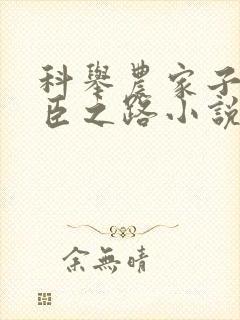 科舉農家子
臣之路小說
余無晴